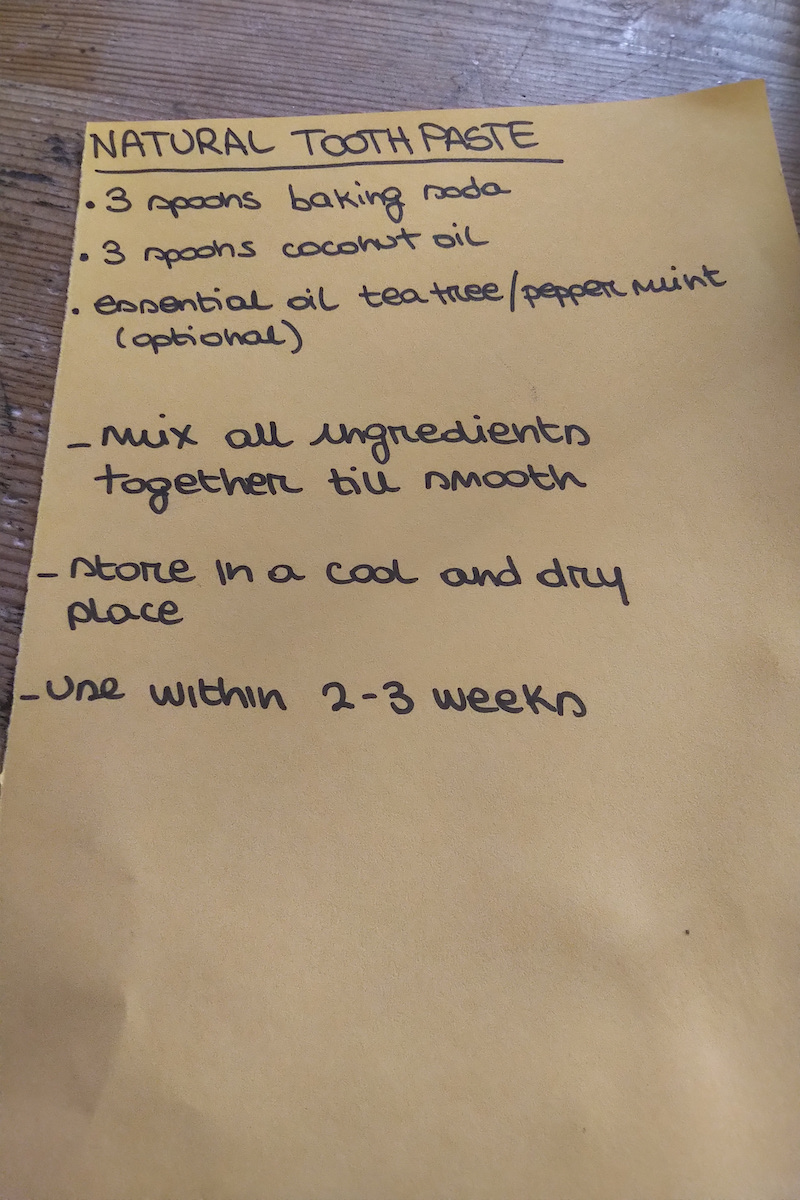 NATURAL TOOTHPASTE
• 3 spoons baking soda
• 3 spoons coconut oil
• essential oil tea tree/peppermint
(optional)
- Mix all ingredients
together till smooth
- store in a cool and dry
place
- Use within 2-3 weeks